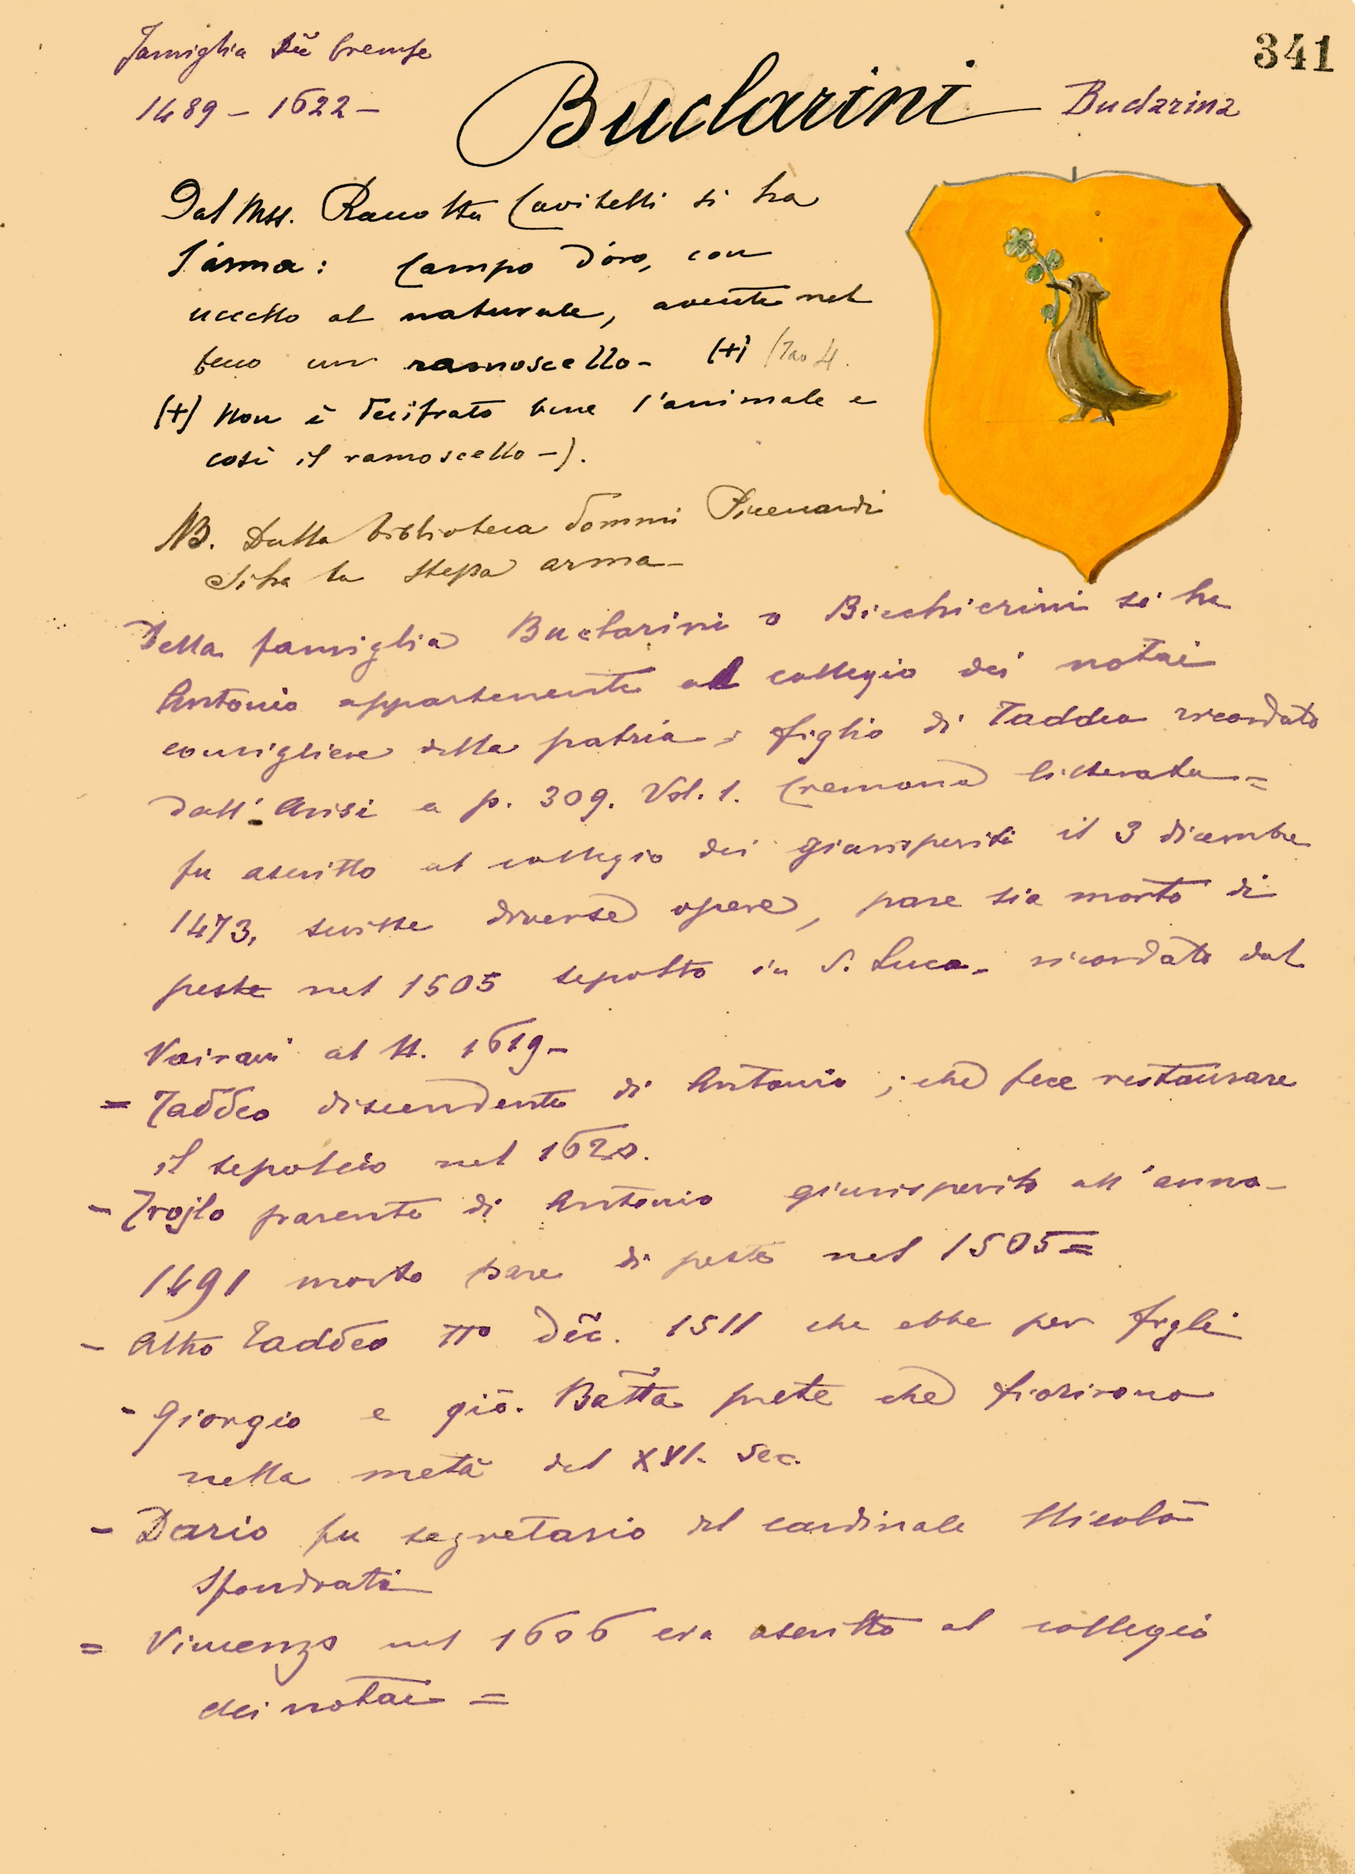 341
Famiglia Cremse
1489 - 1622 -
Buclarini
Buclarina
Dal Mss. Racolta Cavitelli si ha
l'arma: Campo d'oro, con
uccello al naturale, avente nel
beco un ramoscello - (+)
(+) Non è decifrato bene l'animale e
così il ramoscello -).
NB. Dalla biblioteca Sommi Picenardi
si ha la stessa arma -
Della famiglia Buclarini o Bicchierini si ha
Antonio appartenente al collegio dei notai
consigliere della patria, figlio di Taddeo ricordato
dall' Arisi a p. 309. Vol. 1. Cremona litterata =
fu ascritto al collegio dei giurisperiti il 3 dicembre
1473, scrisse diverse opere, pare sia morto di
peste nel 1505 sepolto in S. Luca - ricordato dal
Vairani al N. 1619 -
= Taddeo discendente di Antonio, che fece restaurare
il sepolcro nel 1620.
- Trojlo parente di Antonio giurisperito all'anno -
1491 morto pare di peste nel 1505 =
- Altro Taddeo Dec. 1511 che ebbe per figli
- Giorgio e Gio. Batta prete che fiorirono
nella metà del XVI. Sec.
- Dario fu segretario del cardinale Nicolò
Sfondrati
= Vincenzo nel 1606 era ascritto al collegio
dei notai =